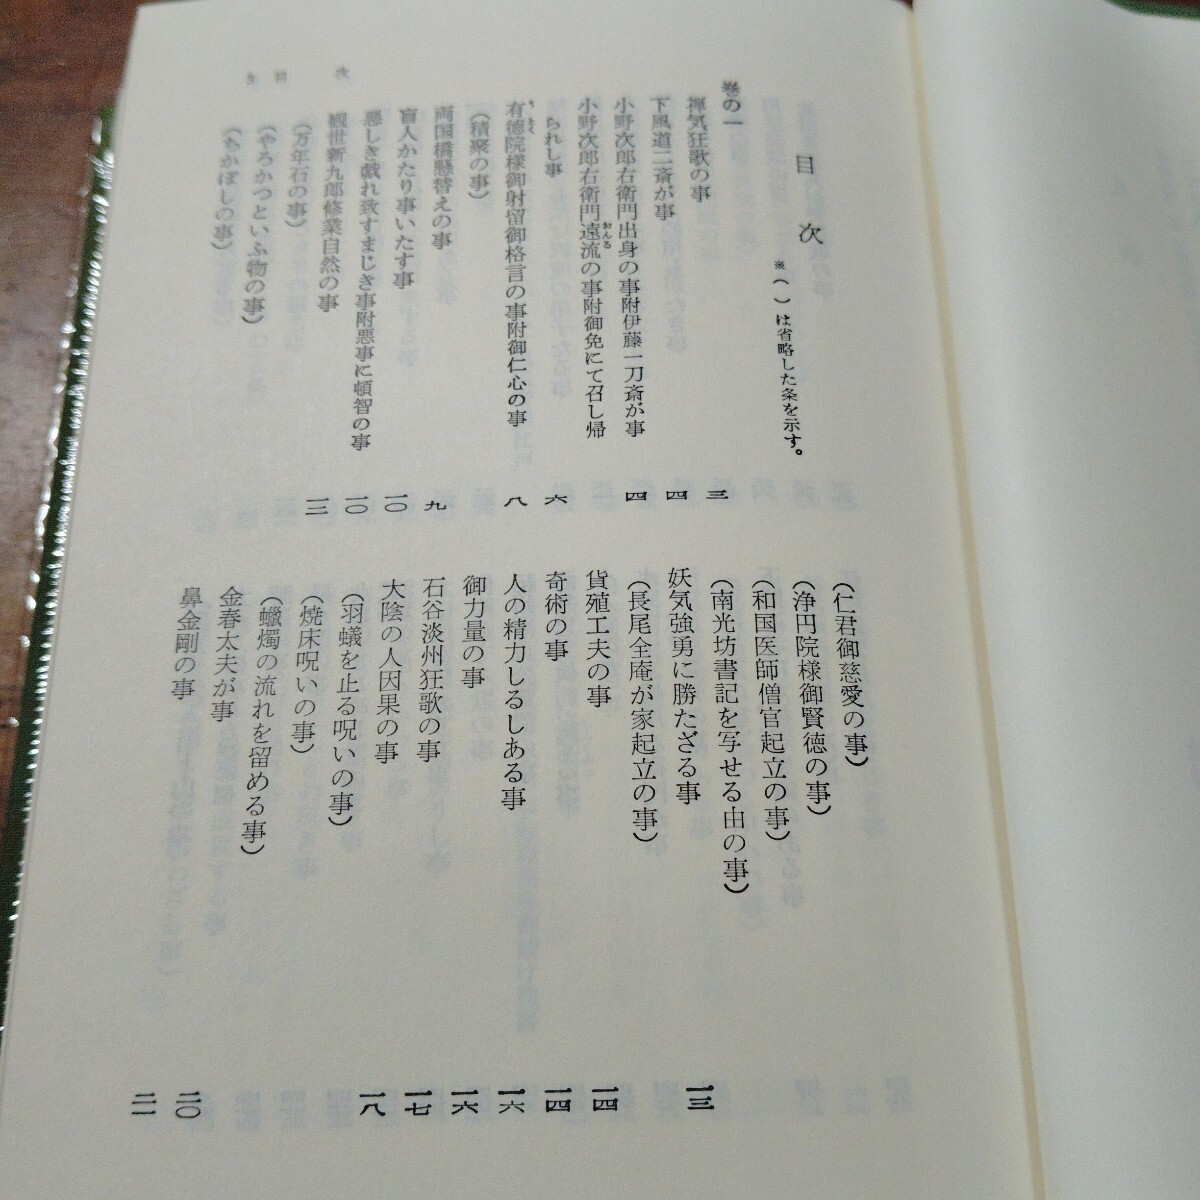 目次
※（ ）は省略した条を示す。
巻の一
禅気狂歌の事 三
下風道二斎が事 四
小野次郎右衛門出身の事附伊藤一刀斎が事 四
小野次郎右衛門遠流の事附御免にて召し帰
おんる
られし事 六
有徳院様御射留御格言の事附御仁心の事 八
（積聚の事）
両国橋懸替えの事 九
盲人かたり事いたす事 一〇
悪しき戯れ致すまじき事附悪事に頓智の事 一〇
観世新九郎修業自然の事 一二
（万年石の事）
（やろかつといふ物の事）
（ちかぼしの事）
（仁君御慈愛の事）
（浄円院様御賢徳の事）
（和国医師僧官起立の事）
（南光坊書記を写せる由の事）
妖気強勇に勝たざる事 一三
（長尾全庵が家起立の事）
貨殖工夫の事 一四
奇術の事 一四
人の精力しるしある事 一六
御力量の事 一六
石谷淡州狂歌の事 一七
大陰の人因果の事 一八
（羽蟻を止る呪いの事）
（焼床呪いの事）
（蠟燭の流れを留める事）
金春太夫が事 二〇
鼻金剛の事 二一
目次